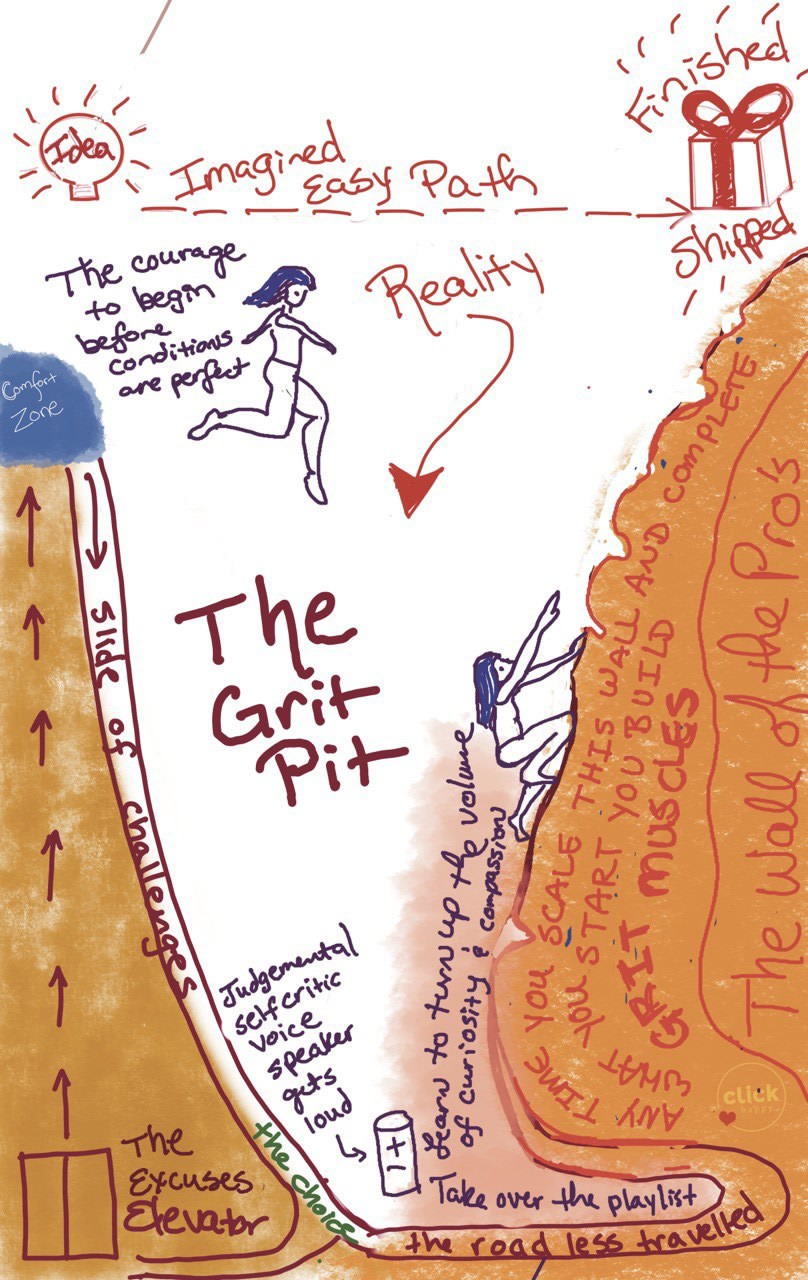 Idea
Imagined
Easy Path
Finished
Shipped
The courage
to begin
before
conditions
are perfect
Reality
Comfort
Zone
The
Grit
Pit
slide of challenges
Judgemental
selfcritic
voice
speaker
gets
loud
- +
Learn to turn up the volume
of curiosity & compassion
Take over the playlist
the road less travelled
the choice
The
Excuses
Elevator
ANY TIME YOU SCALE THIS WALL AND COMPLETE
WHAT YOU START YOU BUILD
GRIT MUSCLES
The Wall of the Pro's
click
HAPPY